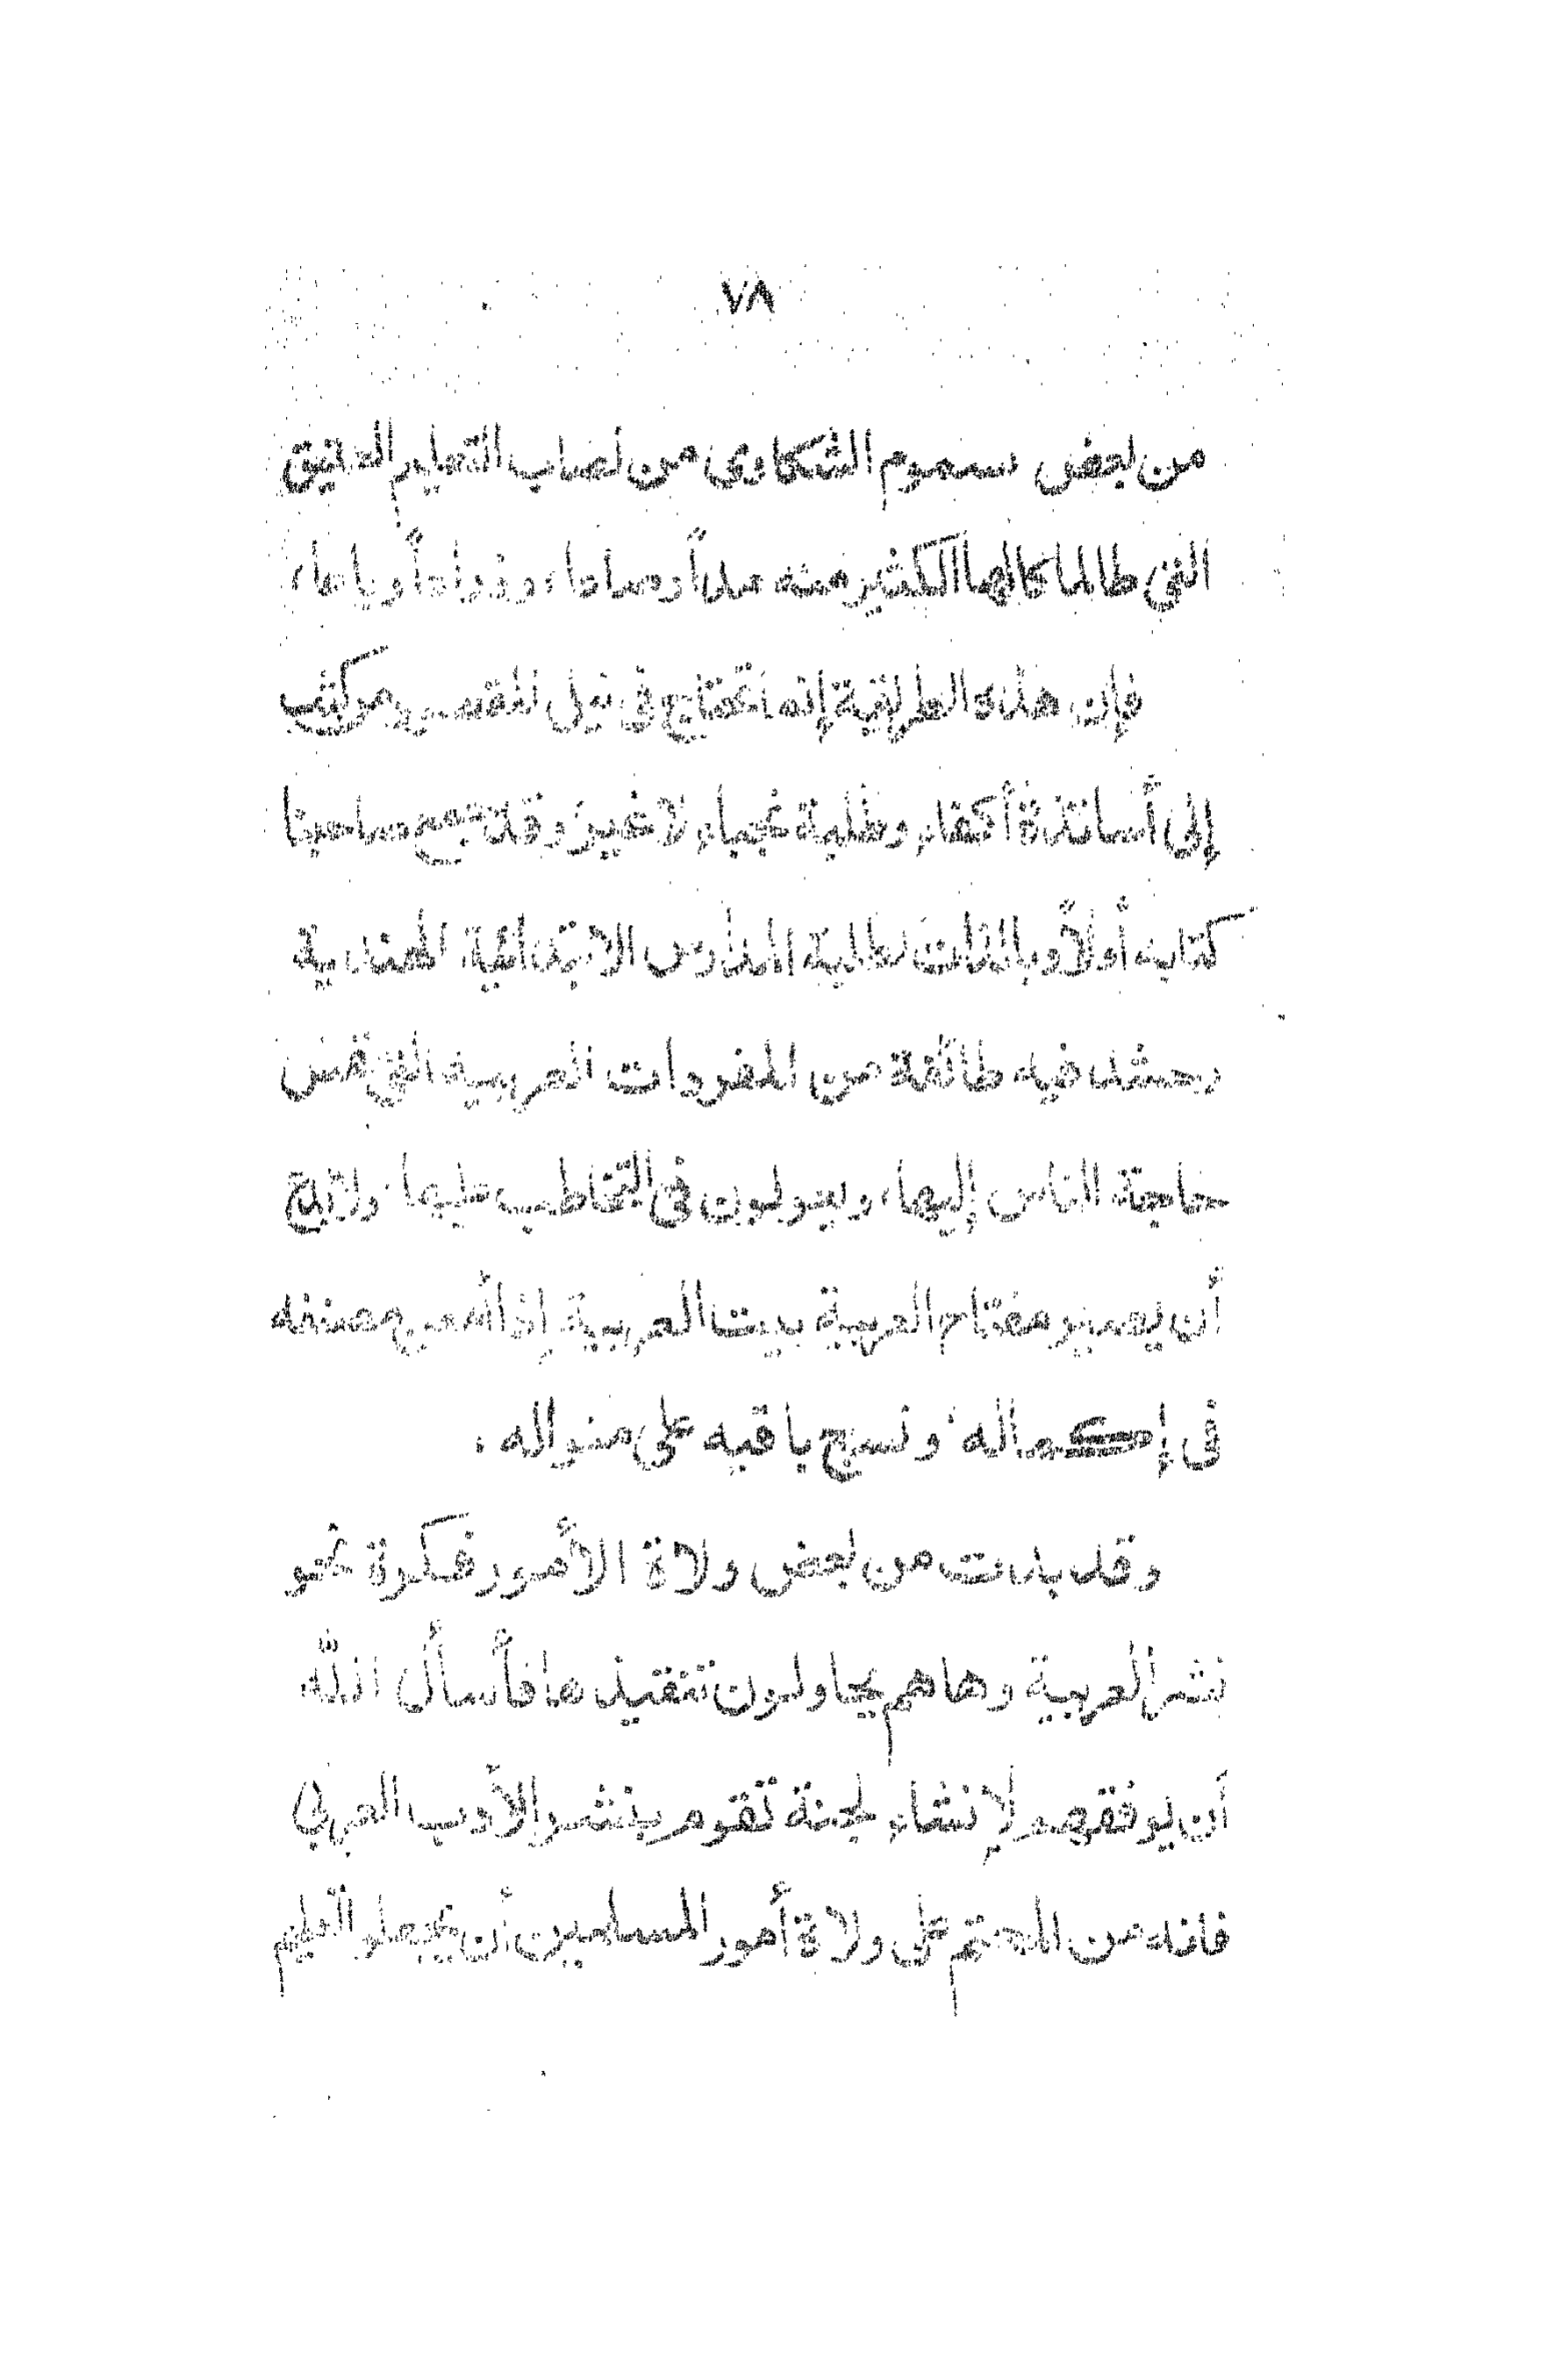 ٧٨
من بعض سموم الشكاوى من نصاب التعليم العتيق
التى طالما كالها الكثير منه مداً وصاعا، وذراعاً وباعا،
فإن هذه الطريقة إنه تحتاج فى نيل المقصود من كثب
إلى أساتذة أكفاء وطلبة نجباء لا غير، وقد جمع صاحبنا
كتابه أولاً وبالذات لطلبة المدارس الابتدائية الهندية
وحشد فيه طائفة من المفردات العربية التى تمس
حاجة الناس إليها، ويعولون فى التخاطب عليها، ولا
أن يصير مفتاح العربية بيت العربية إذا أسرع مصنفه
فى إكماله، ونسج باقيه على منواله.
وقد بدت من بعض ولاة الأمور فكرة نحو
نشر العربية وهاهم يحاولون تنفيذها فأسأل الله
أن يوفقهم لإنشاء لجنة تقوم بنشر الأدب العربي
فانه من المحتم على ولاة أمور المسلمين أن يجعلوا التعليم